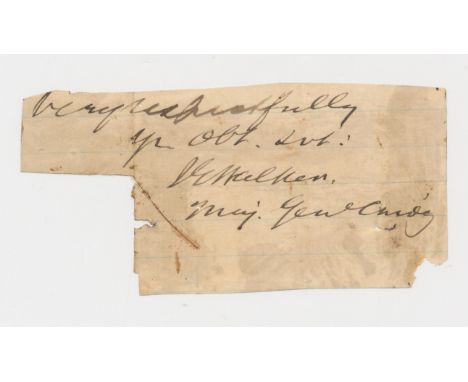 Very respectfully
Yr. Obt. Svt:
JGWalker.
Maj. Genl Comdg